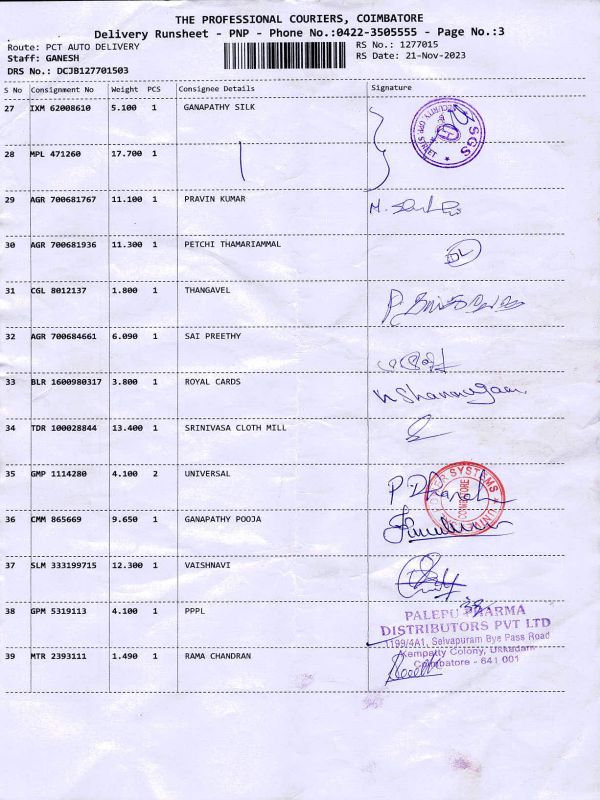 THE PROFESSIONAL COURIERS, COIMBATORE
Delivery Runsheet - PNP - Phone No.:0422-3505555 - Page No.:3
Route: PCT AUTO DELIVERY RS No.: 1277015
Staff: GANESH RS Date: 21-Nov-2023
DRS No.: DCJB127701503
S No Consignment No Weight PCS Consignee Details Signature
27 IXM 62008610 5.100 1 GANAPATHY SILK
SGS
28 MPL 471260 17.700 1
29 AGR 700681767 11.100 1 PRAVIN KUMAR
30 AGR 700681936 11.300 1 PETCHI THAMARIAMMAL
31 CGL 8012137 1.800 1 THANGAVEL
32 AGR 700684661 6.090 1 SAI PREETHY
33 BLR 1600980317 3.800 1 ROYAL CARDS
34 TDR 100028844 13.400 1 SRINIVASA CLOTH MILL
35 GMP 1114280 4.100 2 UNIVERSAL
SYSTEMS
COIMBATORE
36 CMM 865669 9.650 1 GANAPATHY POOJA
37 SLM 333199715 12.300 1 VAISHNAVI
38 GPM 5319113 4.100 1 PPPL
PALEPU PHARMA
DISTRIBUTORS PVT LTD
1199/4A1, Selvapuram Bye Pass Road
Kempatty Colony, Ukkadam
Coimbatore - 641 001
39 MTR 2393111 1.490 1 RAMA CHANDRAN